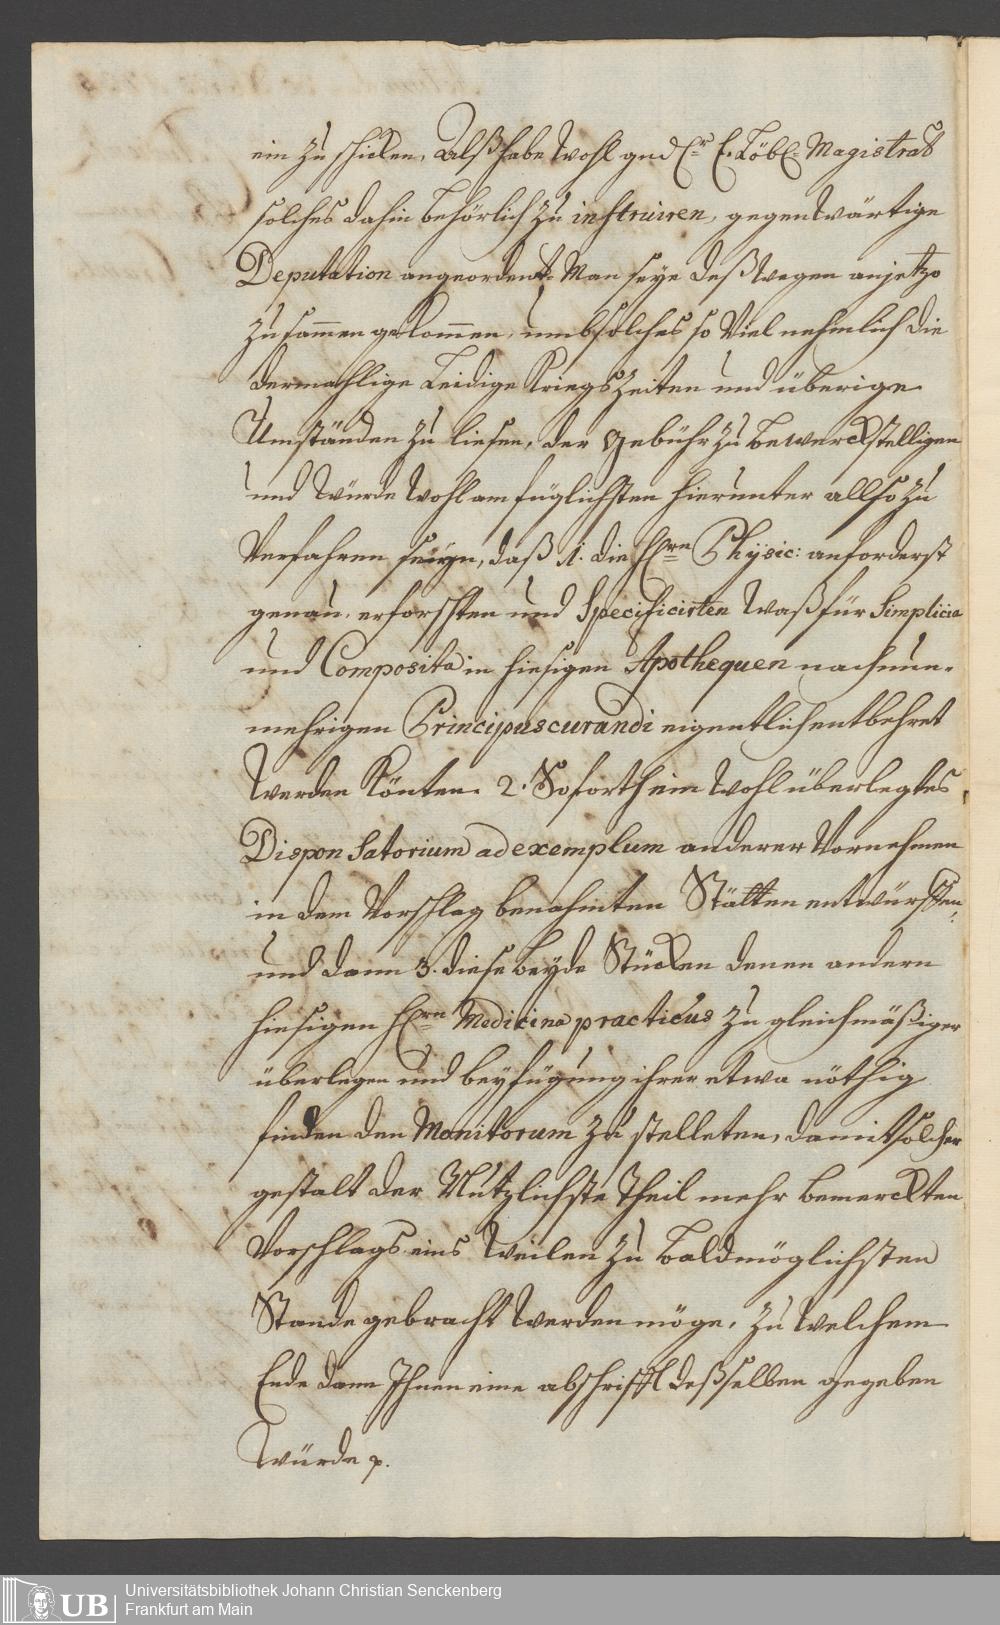 ein zu schicken, Alß habe Wohl gned Er E. Löbl. Magistrat
solches dahin behörlich zu instruiren, gegenwärtige
Deputation angeordent. Man seye deßwegen anjetzo
zusam̄en gekom̄en, umb solches so Viel nehmlich die
dermahlige Leidige KriegsZeiten und überige
Umständen zu liesen, der Gebühr zu bewerckstelligen
und würde Wohl am füglichsten hierunter allso zu
Verfahren seyn, daß 1. die Hrn Physic: anforderst
genau erforschten und Specificirten Waß für Simplicia
und Composita in hiesigen Apothequen nach nun-
mehrigen Principiis curandi eigentlich entbehret
Werden Könten. 2. Soforth ein Wohl überlegtes
Dispensatorium ad exemplum anderer Vornehmen
in dem Vorschlag benahmten Stätten entwürffen,
und dann 3. diese beyde Stücken denen andern
hiesigen Hrn Medicina practicus zu gleichmäßiger
überlegen und beyfügung ihrer etwa nöthig
finden den Monitorum zu stelleten, damit solcher
gestalt der Nutzlichste Theil mehr bemerckten
Vorschlags eins Weilen zu baldmöglichsten
Stande gebracht werden möge, zu Welchem
Ende dann Ihnen eine abschrifft deßselben gegeben
Würde p.
UB
Universitätsbibliothek Johann Christian Senckenberg
Frankfurt am Main